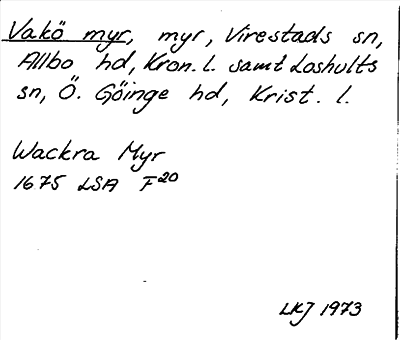 Vakö myr, myr, Virestads sn,
Allbo hd, Kron. l. samt Loshults
sn, Ö. Göinge hd, Krist. l.
Wackra Myr
1675 LSA F20
LKJ 1973